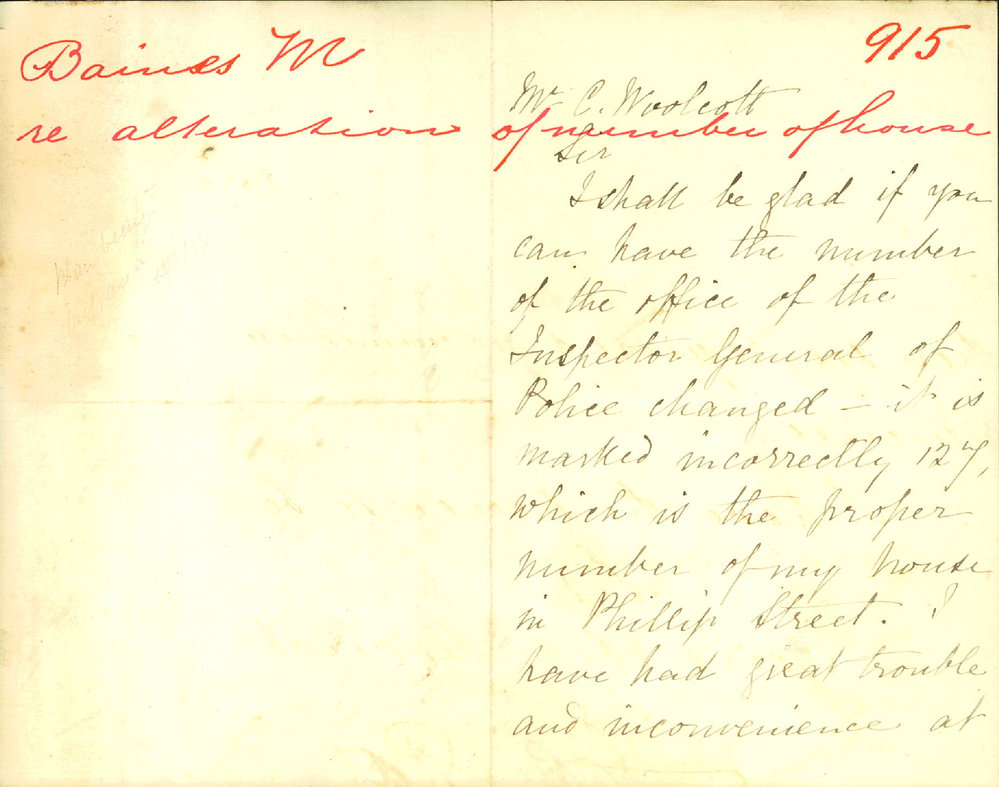 915
Baines M
re alteration of number of house
Mr C. Woolcott
Sir
I shall be glad if you
can have the number
of the office of the
Inspector General of
Police changed – it is
marked incorrectly 127,
which is the proper
number of my house
in Phillip Street. I
have had great trouble
and inconvenience at